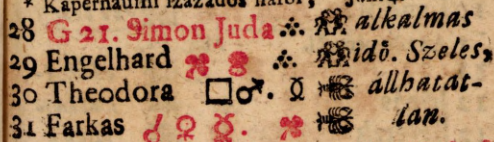 * Kapernaumi százados
28 G 21. Simon Juda ∴ alkalmas
29 Engelhard ∴ idő. Szeles,
30 Theodora □♂. ☿ állhatat-
31 Farkas ☌ ♀ ☿. lan.